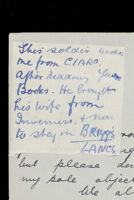 This soldier wrote
me from CIARO.
After reading Your
Books. He brought
his wife from
Inverness. & now
to stay in BRIGGS
LANCS
but please don
my sole object
We al